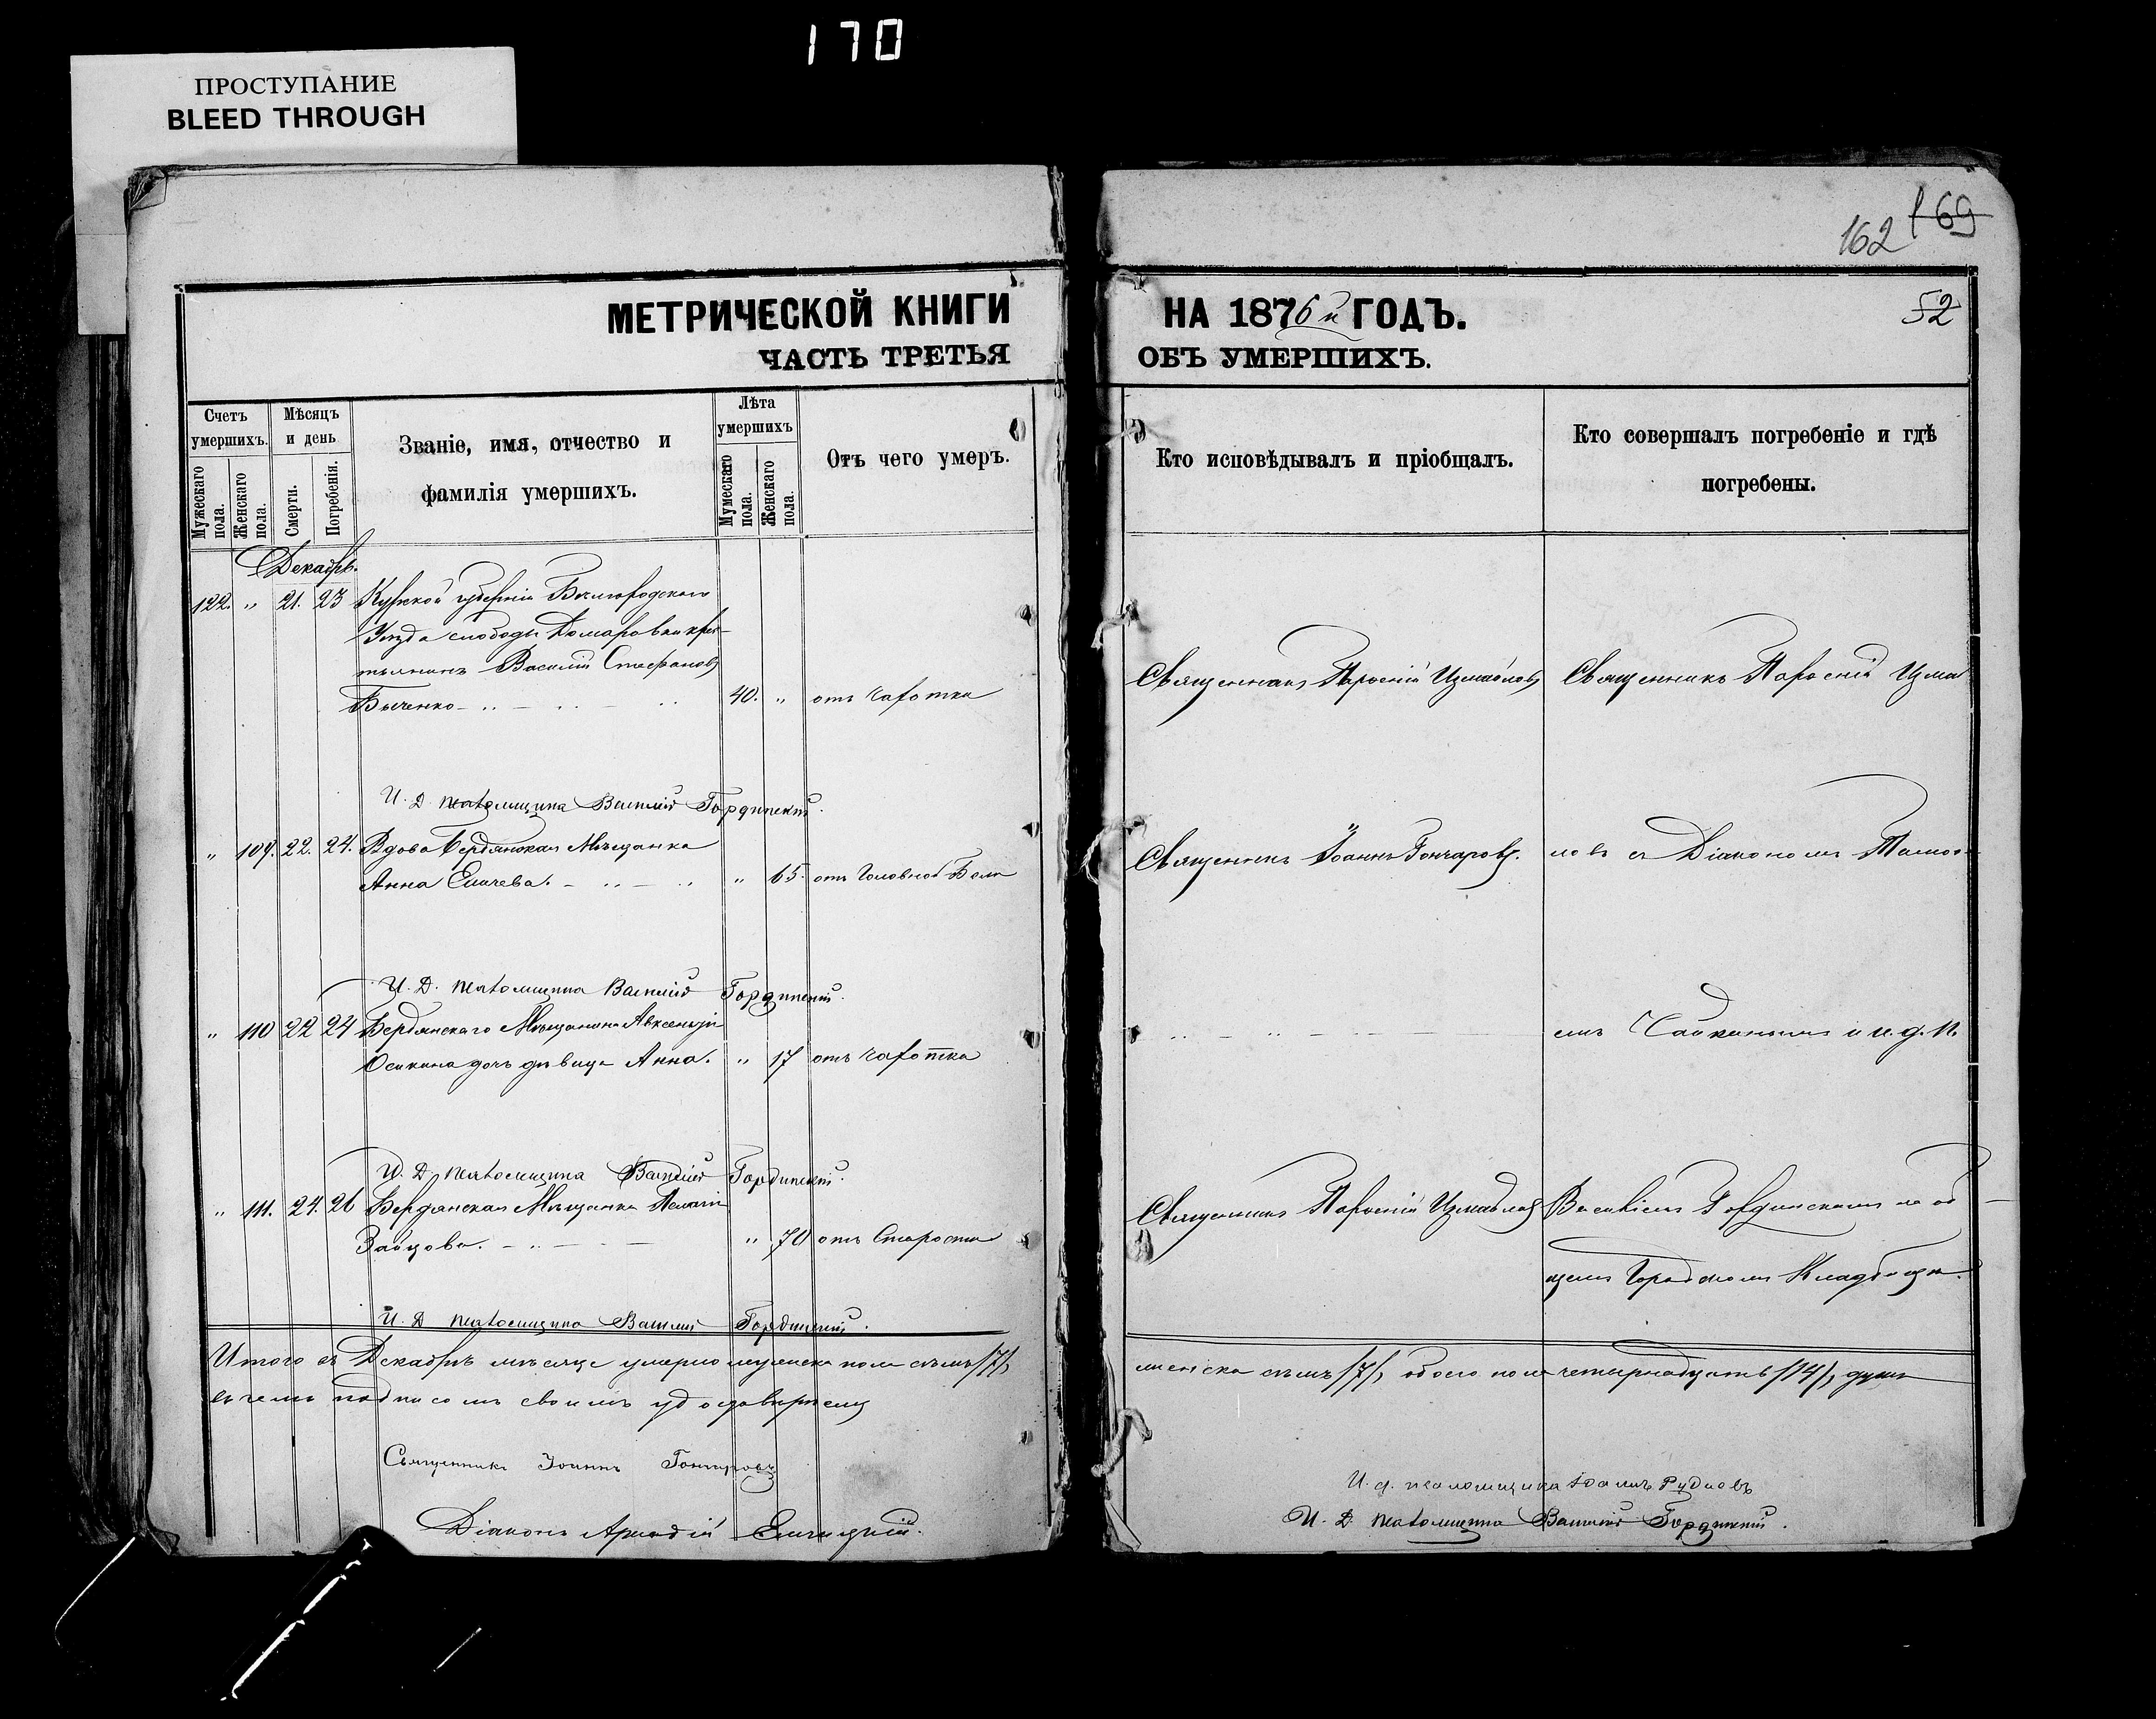 170
ПРОСТУПАНИЕ
BLEED THROUGH
162 169
МЕТРИЧЕСКОЙ КНИГИ НА 1876 й ГОДЪ. 52
ЧАСТЬ ТРЕТЬЯ ОБЪ УМЕРШИХЪ.
Счетъ умершихъ.
Мужескаго пола.
Женскаго пола.
Мѣсяцъ и день
Смерти.
Погребенія.
Званіе, имя, отчество и
фамилія умершихъ.
Лѣта умершихъ
Мужескаго пола.
Женскаго пола.
Отъ чего умеръ.
Кто исповѣдывалъ и пріобщалъ.
Кто совершалъ погребеніе и гдѣ
погребены.
Декабрь.
122. " 21. 23 Курской губерніи Бѣлгородскаго
Уѣзда слободы Томаровки крес-
тьянинъ Василій Стефановъ
Быченко 40. " отъ Чахотки
Священникъ Измаиловъ Священникъ Измаи
И. Д. псаломщика Василій Гординскій.
" 109. 22. 24. Вдова Бердянская Мѣщанка
Анна Емичева. " 65. отъ Головной Боли
Священникъ Іоаннъ Гончаровъ. ловъ съ Діакономъ
И. Д. псаломщика Василій Гординскій.
" 110 22 24 Бердянскаго Мѣщанина Авксентія
Осикина дочь дѣвица Анна. " 17 отъ чахотки
емъ и и. д. п.
И. Д. псаломщика Василій Гординскій.
" 111. 24. 26 Бердянская Мѣщанка Пелагія
Зайцова. " 70 отъ Старости
Священникъ Измаиловъ Василіемъ Гординскимъ на об
щемъ Городскомъ Кладбищѣ.
И. Д. псаломщика Василій Гординскій.
Итого въ Декабрѣ мѣсяцѣ умерло мужеска пола семь /7/,
женска семь /7/, обоего пола четырнадцать /14/, душъ
въ чемъ подписомъ своимъ удостовѣряемъ
Священникъ Іоаннъ Гончаровъ
Діаконъ Аркадій
И. д. псаломщика Рудневъ
И. Д. псаломщика Василій Гординскій.